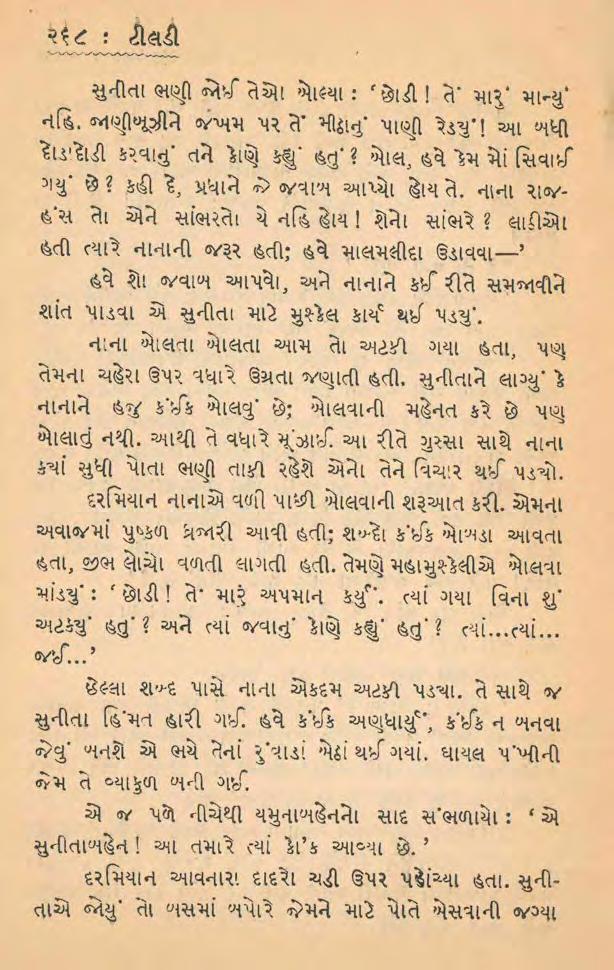 ૨૬૮ : ટીલડી
સુનીતા ભણી જોઈ તેઓ બોલ્યા : ‘છોડી ! તેં મારું માન્યું
નહિ. જાણીબૂઝીને જખમ પર તેં મીઠાનું પાણી રેડ્યું ! આ બધી
દોડાદોડી કરવાનું તને કોણે કહ્યું હતું ? બોલ, હવે કેમ મોં સિવાઈ
ગયું છે ? કહી દે, પ્રધાને જે જવાબ આપ્યો હોય તે. નાના રાજ-
હંસ તો એને સાંભરતો યે નહિ હોય ! શેનો સાંભરે ? લાડીઓ
હતી ત્યારે નાનાની જરૂર હતી; હવે માલમલીદા ઉડાવવા—’
હવે શો જવાબ આપવો, અને નાનાને કઈ રીતે સમજાવીને
શાંત પાડવા એ સુનીતા માટે મુશ્કેલ કાર્ય થઈ પડ્યું.
નાના બોલતા બોલતા આમ તો અટકી ગયા હતા, પણ
તેમના ચહેરા ઉપર વધારે ઉગ્રતા જણાતી હતી. સુનીતાને લાગ્યું કે
નાનાને હજુ કંઈક બોલવું છે; બોલવાની મહેનત કરે છે પણ
બોલાતું નથી. આથી તે વધારે મૂંઝાઈ. આ રીતે ગુસ્સા સાથે નાના
ક્યાં સુધી પોતા ભણી તાકી રહેશે એનો તેને વિચાર થઈ પડ્યો.
દરમિયાન નાનાએ વળી પાછી બોલવાની શરૂઆત કરી. એમના
અવાજમાં પુષ્કળ ધ્રૂજારી આવી હતી; શબ્દો કંઈક બોબડા આવતા
હતા, જીભ લોચો વળતી લાગતી હતી. તેમણે મહામુશ્કેલીએ બોલવા
માંડ્યું : ‘ છોડી ! તેં મારું અપમાન કર્યું. ત્યાં ગયા વિના શું
અટક્યું હતું ? અને ત્યાં જવાનું કોણે કહ્યું હતું ? ત્યાં...ત્યાં...
જઈ...’
છેલ્લા શબ્દ પાસે નાના એકદમ અટકી પડ્યા. તે સાથે જ
સુનીતા હિંમત હારી ગઈ. હવે કંઈક અણધાર્યું, કંઈક ન બનવા
જેવું બનશે એ ભયે તેનાં રુંવાડાં બેઠાં થઈ ગયાં. ઘાયલ પંખીની
જેમ તે વ્યાકુળ બની ગઈ.
એ જ પળે નીચેથી યમુનાબહેનનો સાદ સંભળાયો : ‘ એ
સુનીતાબહેન ! આ તમારે ત્યાં કો’ક આવ્યા છે. ’
દરમિયાન આવનારા દાદરો ચડી ઉપર પહોંચ્યા હતા. સુની-
તાએ જોયું તો બસમાં બપોરે જેમને માટે પોતે બેસવાની જગ્યા